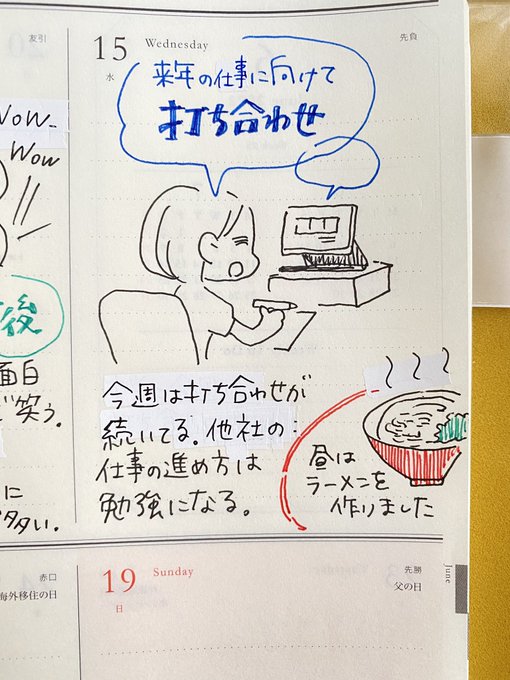 友引
15
Wednesday
先負
水
来年の仕事に向けて
打ち合わせ
Wow-
Wow
後
面白
笑う。
に
多い。
今週は打ち合わせが
続いてる。他社の
仕事の進め方は
勉強になる。
昼は
ラーメンを
作りました
赤口
海外移住の日
19
Sunday
日
先勝
父の日
June